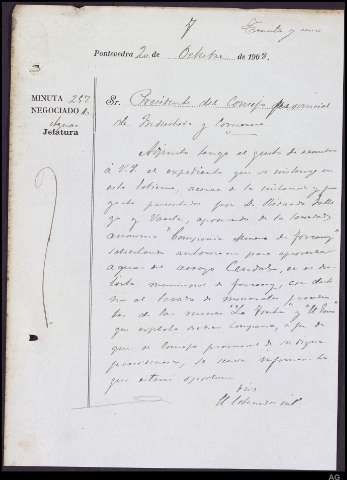 7
Treinta y uno
Pontevedra 20 de Octubre de 190
MINUTA 257
NEGOCIADO de
Aguas
Jefatura
Sr. Presidente del Consejo provincial
de Industria y Comercio
Adjunto tengo el gusto de remitir
á V.S. el expediente que se instruye en
esta Jefatura, acerca de la instancia y pro
yecto presentados por D. Ricardo
y Varela, apoderado de la sociedad
anónima "Compañía Minera de
solicitando autorización para aprovechar
aguas del arroyo en el dis
trito municipal de con desti
no al lavado de minerales proceden
tes de las minas "La" y "El
que explota dicha Compañía, á fin de
que el Consejo provincial de su digna
presidencia, se sirva informar lo
que estime oportuno.
Dios
El
AG